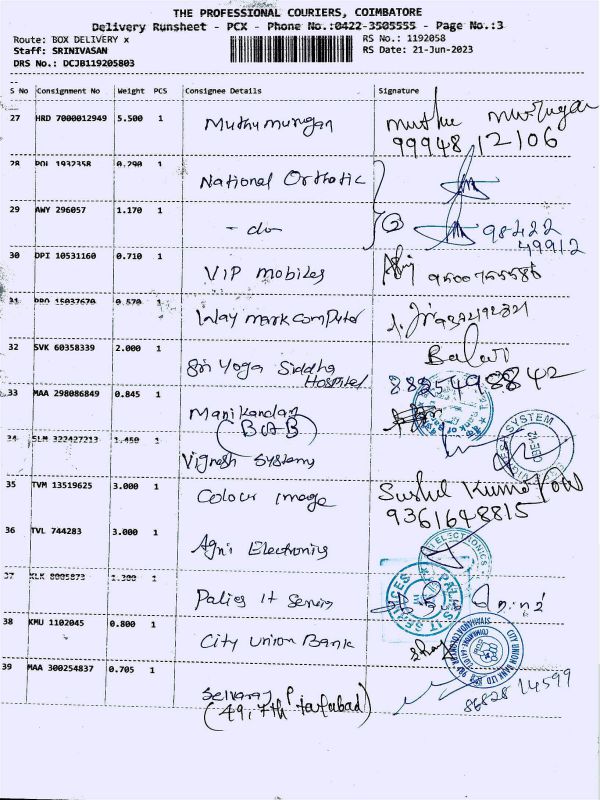 THE PROFESSIONAL COURIERS, COIMBATORE
Delivery Runsheet - PCX - Phone No.:0422-3505555 - Page No.:3
Route: BOX DELIVERY x RS No.: 1192058
Staff: SRINIVASAN RS Date: 21-Jun-2023
DRS No.: DCJB119205803
S No Consignment No Weight PCS Consignee Details Signature
27 HRD 7000012949 5.500 1 Muthumurugan Muthu Murugan
99948 12106
28 POL 1932358 0.290 1 National Orthotic
29 AWY 296057 1.170 1 - do - 98422
49912
30 DPI 10531160 0.710 1 VIP mobiles
31 15037670 0.570 1 Way mark computer
32 SVK 60358339 2.000 1 Sri Yoga Siddha
Hospital 8825498842
33 MAA 298086849 0.845 1 Manikandan
(BOB)
34 SLM 322427213 1.450 1 Vignesh Systems
35 TVM 13519625 3.000 1 Colour image Sushil Kumar
9361648815
36 TVL 744283 3.000 1 Agni Electronics
37 KLK 8005873 1.300 1 Palies It Servis
38 KMU 1102045 0.800 1 City Union Bank
CITY UNION BANK LTD
39 MAA 300254837 0.705 1 Selvaraj P
(49, 7th 86828 14599